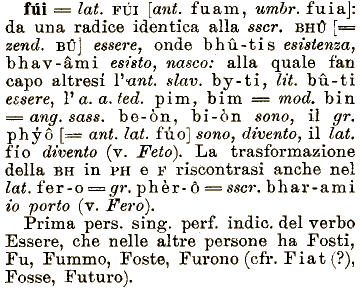 fúi = lat. FÚI [ant. fuam, umbr. fuia]:
da una radice identica alla sscr. BHÛ [=
zend. BÛ] essere, onde bhû-tis esistenza,
bhav-âmi esisto, nasco: alla quale fan
capo altresì l'ant. slav. by-ti, lit. bû-ti
essere, l'a. a. ted. pim, bim = mod. bin
= ang. sass. be-òn, bi-òn sono, il gr.
phýô [= ant. lat. fúo] sono, divento, il lat.
fío divento (v. Feto). La trasformazione
della BH in PH e F riscontrasi anche nel
lat. fer-o = gr. phèr-ô = sscr. bhar-ami
io porto (v. Fero).
Prima pers. sing. perf. indic. del verbo
Essere, che nelle altre persone ha Fosti,
Fu, Fummo, Foste, Furono (cfr. Fiat (?),
Fosse, Futuro).